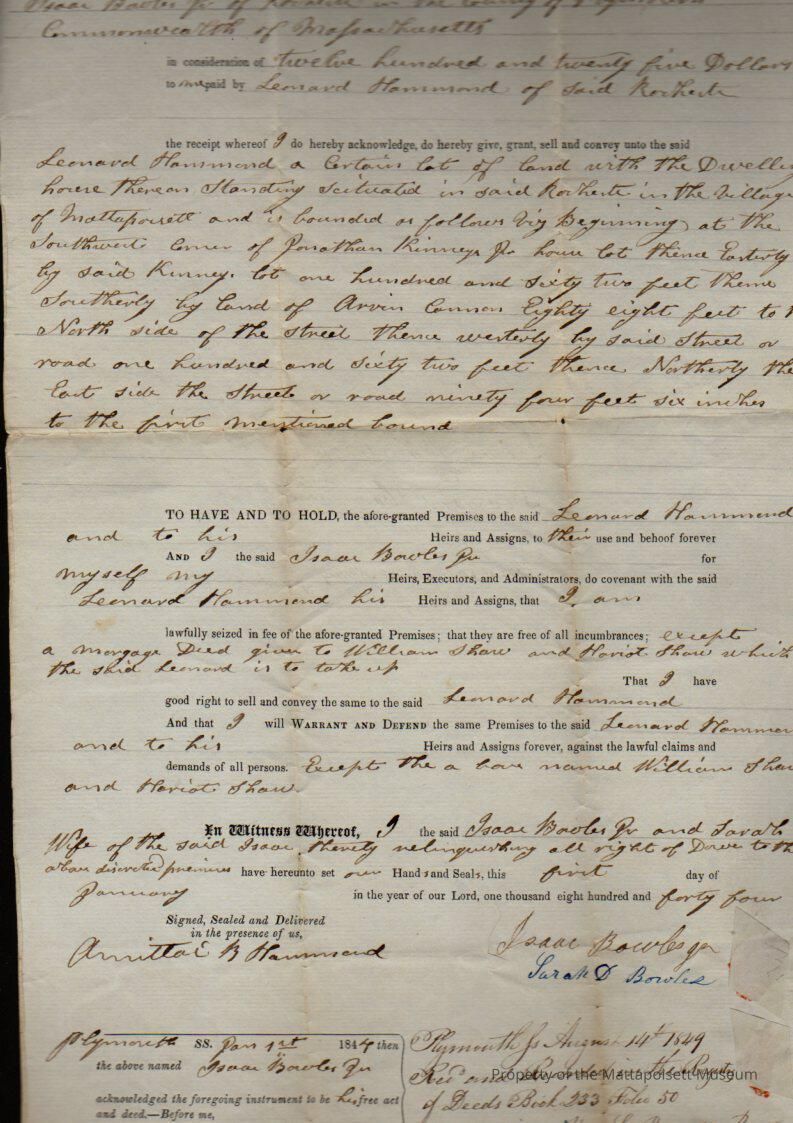 Isaac Bowles Jr of Rochester in the County of Plymouth
Commonwealth of Massachusetts
in consideration of twelve hundred and twenty five Dollars
to me paid by Leonard Hammond of said Rochester
the receipt whereof I do hereby acknowledge, do hereby give, grant, sell and convey unto the said
Leonard Hammond a Certain lot of land with the Dwelling
house thereon Standing scituated in said Rochester in the Village
of Mattapoisett and is bounded as follows viz Beginning at the
Southwest Corner of Jonathan Kinneys Jr house lot thence Easterly
by said Kinneys lot one hundred and sixty two feet thence
Southerly by land of Arvin Cannon Eighty eight feet to
North side of the street thence westerly by said Street or
road one hundred and sixty two feet thence Northerly the
East side the Street or road ninety four feet six inches
to the first mentioned bound
TO HAVE AND TO HOLD, the afore-granted Premises to the said Leonard Hammond
and to his Heirs and Assigns, to their use and behoof forever
AND I the said Isaac Bowles Jr for
myself my Heirs, Executors, and Administrators, do covenant with the said
Leonard Hammond his Heirs and Assigns, that I am
lawfully seized in fee of the afore-granted Premises; that they are free of all incumbrances; except
a morgage Deed given to William Shaw and Hariot Shaw which
the said Leonard is to take up
That I have
good right to sell and convey the same to the said Leonard Hammond
And that I will WARRANT AND DEFEND the same Premises to the said Leonard Hammon
and to his Heirs and Assigns forever, against the lawful claims and
demands of all persons. Except the a bove named William Shaw
and Hariot Shaw
In Witness Whereof, I the said Isaac Bowles Jr and Sarah
Wife of the said Isaac, thereby relinquishing all right of Dower to the
above discribed premises have hereunto set our Hands and Seals, this first day of
January in the year of our Lord, one thousand eight hundred and forty four
Signed, Sealed and Delivered
in the presence of us,
Amittai B Hammond
Isaac Bowles Jr
Sarah D Bowles
Plymouth SS. Jan 1st 1844 then
the above named Isaac Bowles Jr
acknowledged the foregoing instrument to be his free act
and deed.—Before me,
Plymouth Ss August 14th 1849
Recd and in the
of Deeds Book 233 Folio 50
Property of the Mattapoisett Museum